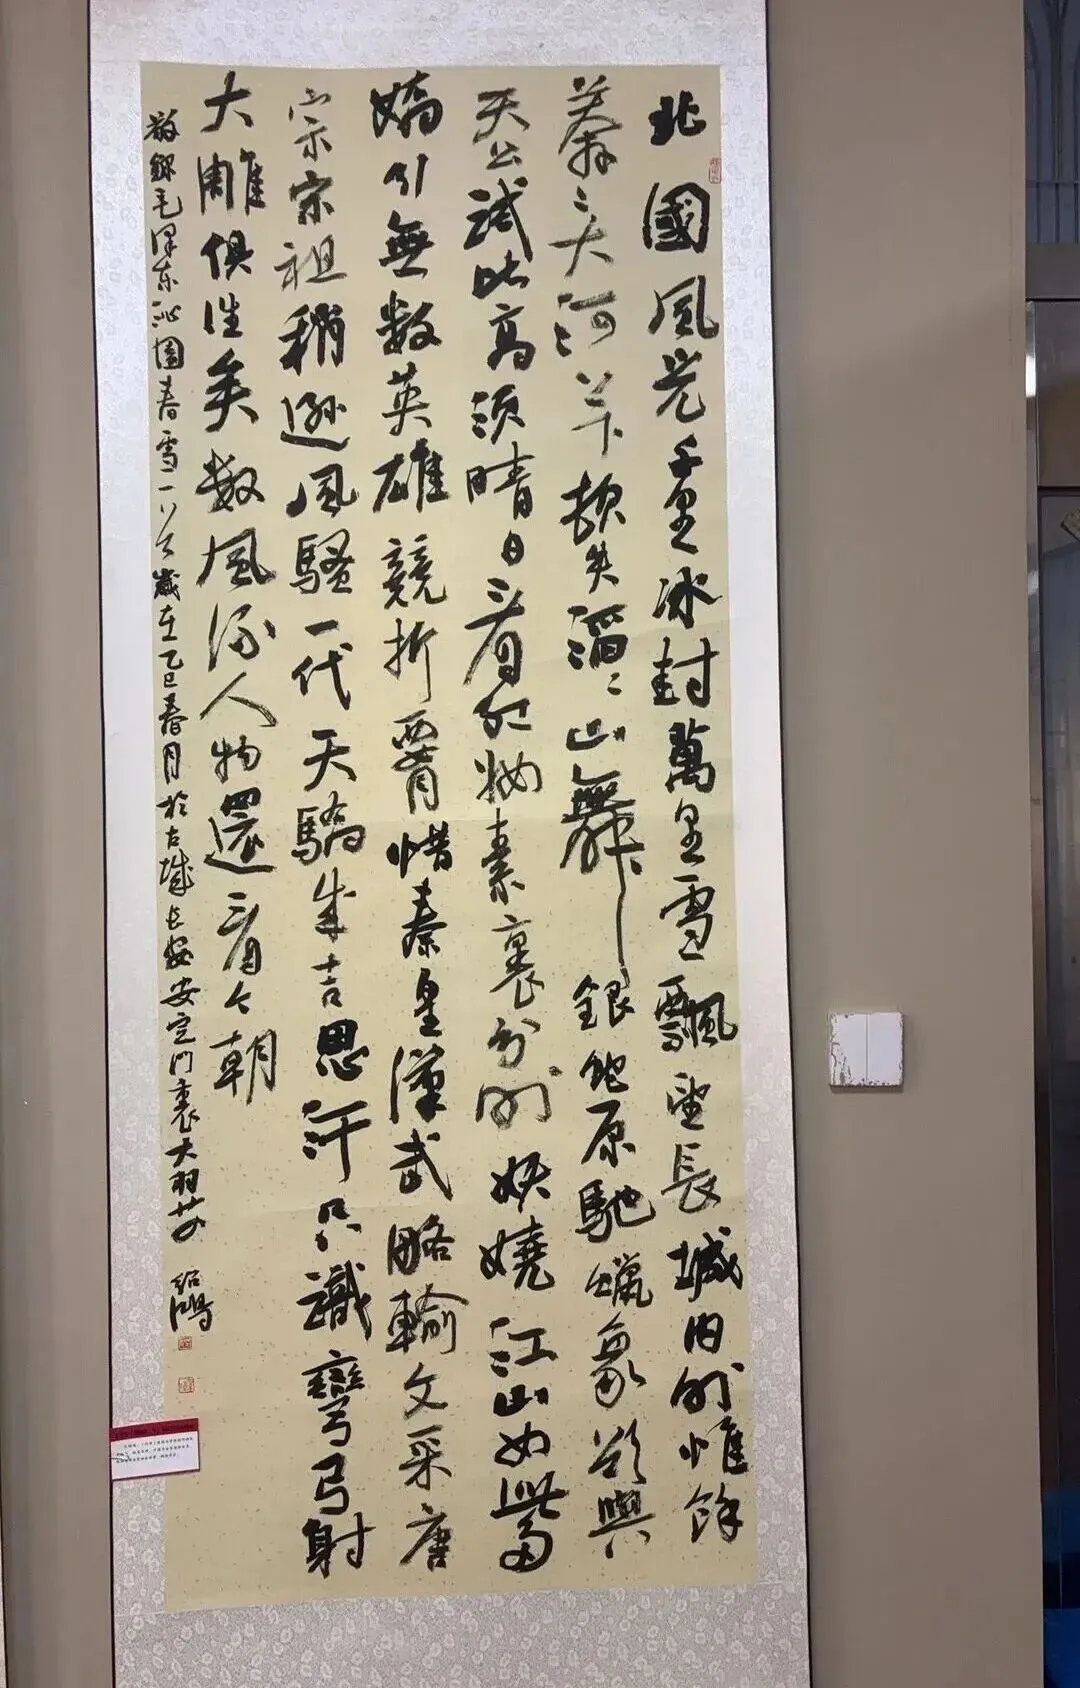 北國風光千里冰封萬里雪飄望長城内外惟餘
莽〻大河上下頓失滔〻山舞銀蛇原馳蠟象欲與
天公試比高須晴日看紅妝素裹分外妖嬈江山如此多
嬌引無数英雄競折腰惜秦皇漢武略輸文采唐
宗宋祖稍遜風騷一代天驕成吉思汗只識彎弓射
大雕俱往矣数風流人物還看今朝
敬錄毛澤东沁園春雪一歲在乙巳春月於古城長安安定門裏大羽 紹鴻